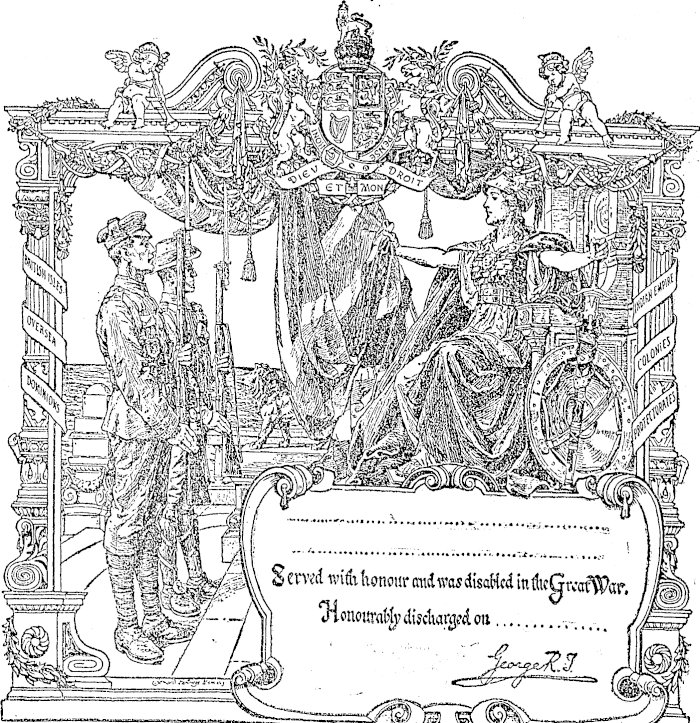 DIEU DROIT
ET MON
BRITISH ISLES
OVERSEA
DOMINIONS
INDIAN EMPIRE
COLONIES
PROTECTORATES
Served with honour and was disabled in the Great War.
Honourably discharged on ....................
George R.I.